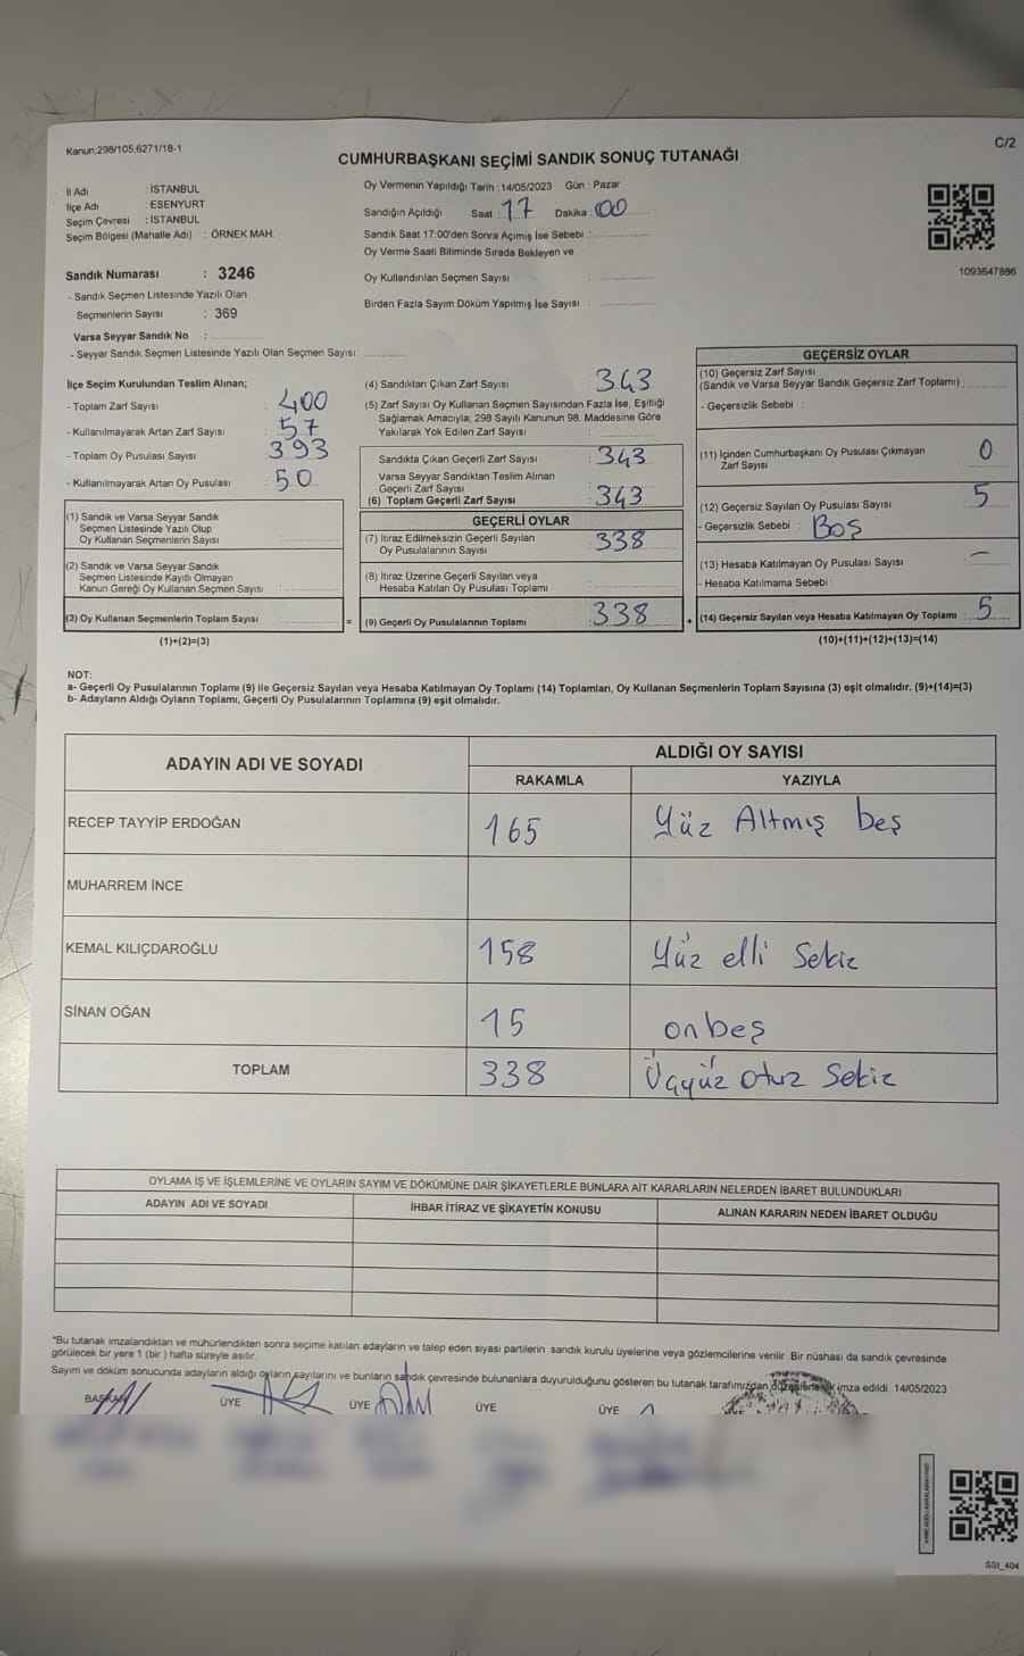 Kanun:298/105,6271/18-1
C/2
CUMHURBAŞKANI SEÇİMİ SANDIK SONUÇ TUTANAĞI
İl Adı : İSTANBUL
İlçe Adı : ESENYURT
Seçim Çevresi : İSTANBUL
Seçim Bölgesi (Mahalle Adı) : ÖRNEK MAH.
Sandık Numarası : 3246
- Sandık Seçmen Listesinde Yazılı Olan
Seçmenlerin Sayısı : 369
Varsa Seyyar Sandık No :
- Seyyar Sandık Seçmen Listesinde Yazılı Olan Seçmen Sayısı
Oy Vermenin Yapıldığı Tarih : 14/05/2023 Gün : Pazar
Sandığın Açıldığı Saat : 17 Dakika : 00
Sandık Saat 17:00'den Sonra Açımış İse Sebebi :
Oy Verme Saati Bitiminde Sırada Bekleyen ve
Oy Kullandırılan Seçmen Sayısı :
Birden Fazla Sayım Döküm Yapılmış İse Sayısı :
1093647886
İlçe Seçim Kurulundan Teslim Alınan;
- Toplam Zarf Sayısı : 400
- Kullanılmayarak Artan Zarf Sayısı : 57
- Toplam Oy Pusulası Sayısı : 393
- Kullanılmayarak Artan Oy Pusulası : 50
(1) Sandık ve Varsa Seyyar Sandık
Seçmen Listesinde Yazılı Olup
Oy Kullanan Seçmenlerin Sayısı :
(2) Sandık ve Varsa Seyyar Sandık
Seçmen Listesinde Kayıtlı Olmayan
Kanun Gereği Oy Kullanan Seçmen Sayısı :
(3) Oy Kullanan Seçmenlerin Toplam Sayısı
(1)+(2)=(3)
=
(4) Sandıktan Çıkan Zarf Sayısı : 343
(5) Zarf Sayısı Oy Kullanan Seçmen Sayısından Fazla İse, Eşitliği
Sağlamak Amacıyla; 298 Sayılı Kanunun 98. Maddesine Göre
Yakılarak Yok Edilen Zarf Sayısı :
Sandıkta Çıkan Geçerli Zarf Sayısı : 343
Varsa Seyyar Sandıktan Teslim Alınan
Geçerli Zarf Sayısı :
(6) Toplam Geçerli Zarf Sayısı : 343
GEÇERLİ OYLAR
(7) İtiraz Edilmeksizin Geçerli Sayılan
Oy Pusulalarının Sayısı : 338
(8) İtiraz Üzerine Geçerli Sayılan veya
Hesaba Katılan Oy Pusulası Toplamı :
(9) Geçerli Oy Pusulalarının Toplamı : 338
+
GEÇERSİZ OYLAR
(10) Geçersiz Zarf Sayısı
(Sandık ve Varsa Seyyar Sandık Geçersiz Zarf Toplamı)
- Geçersizlik Sebebi :
(11) İçinden Cumhurbaşkanı Oy Pusulası Çıkmayan
Zarf Sayısı 0
(12) Geçersiz Sayılan Oy Pusulası Sayısı 5
- Geçersizlik Sebebi : Boş
(13) Hesaba Katılmayan Oy Pusulası Sayısı —
- Hesaba Katılmama Sebebi
(14) Geçersiz Sayılan veya Hesaba Katılmayan Oy Toplamı : 5
(10)+(11)+(12)+(13)=(14)
NOT:
a- Geçerli Oy Pusulalarının Toplamı (9) ile Geçersiz Sayılan veya Hesaba Katılmayan Oy Toplamı (14) Toplamları, Oy Kullanan Seçmenlerin Toplam Sayısına (3) eşit olmalıdır. (9)+(14)=(3)
b- Adayların Aldığı Oyların Toplamı, Geçerli Oy Pusulalarının Toplamına (9) eşit olmalıdır.
ADAYIN ADI VE SOYADI
ALDIĞI OY SAYISI
RAKAMLA YAZIYLA
RECEP TAYYİP ERDOĞAN 165 Yüz Altmış beş
MUHARREM İNCE
KEMAL KILIÇDAROĞLU 158 Yüz elli Sekiz
SİNAN OĞAN 15 onbeş
TOPLAM 338 Üçyüz otuz Sekiz
OYLAMA İŞ VE İŞLEMLERİNE VE OYLARIN SAYIM VE DÖKÜMÜNE DAİR ŞİKAYETLERLE BUNLARA AİT KARARLARIN NELERDEN İBARET BULUNDUKLARI
ADAYIN ADI VE SOYADI İHBAR İTİRAZ VE ŞİKAYETİN KONUSU ALINAN KARARIN NEDEN İBARET OLDUĞU
*Bu tutanak imzalandıktan ve mühürlendikten sonra seçime katılan adayların ve talep eden siyasi partilerin sandık kurulu üyelerine veya gözlemcilerine verilir. Bir nüshası da sandık çevresinde
görülecek bir yere 1 (bir) hafta süreyle asılır.
Sayım ve döküm sonucunda adayların aldığı oyların sayılarını ve bunların sandık çevresinde bulunanlara duyurulduğunu gösteren bu tutanak tarafımızdan imza edildi. 14/05/2023
BAŞKAN ÜYE ÜYE ÜYE ÜYE